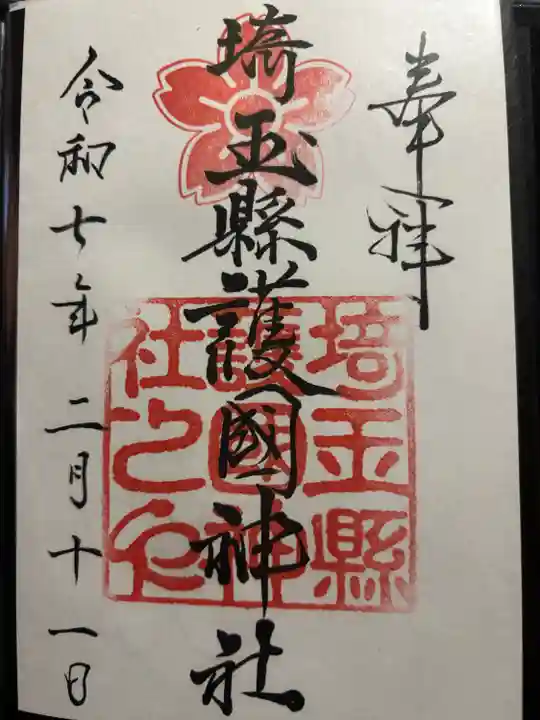 奉拝
埼玉縣護國神社
埼玉縣
護國神
社之印
令和七年二月十一日